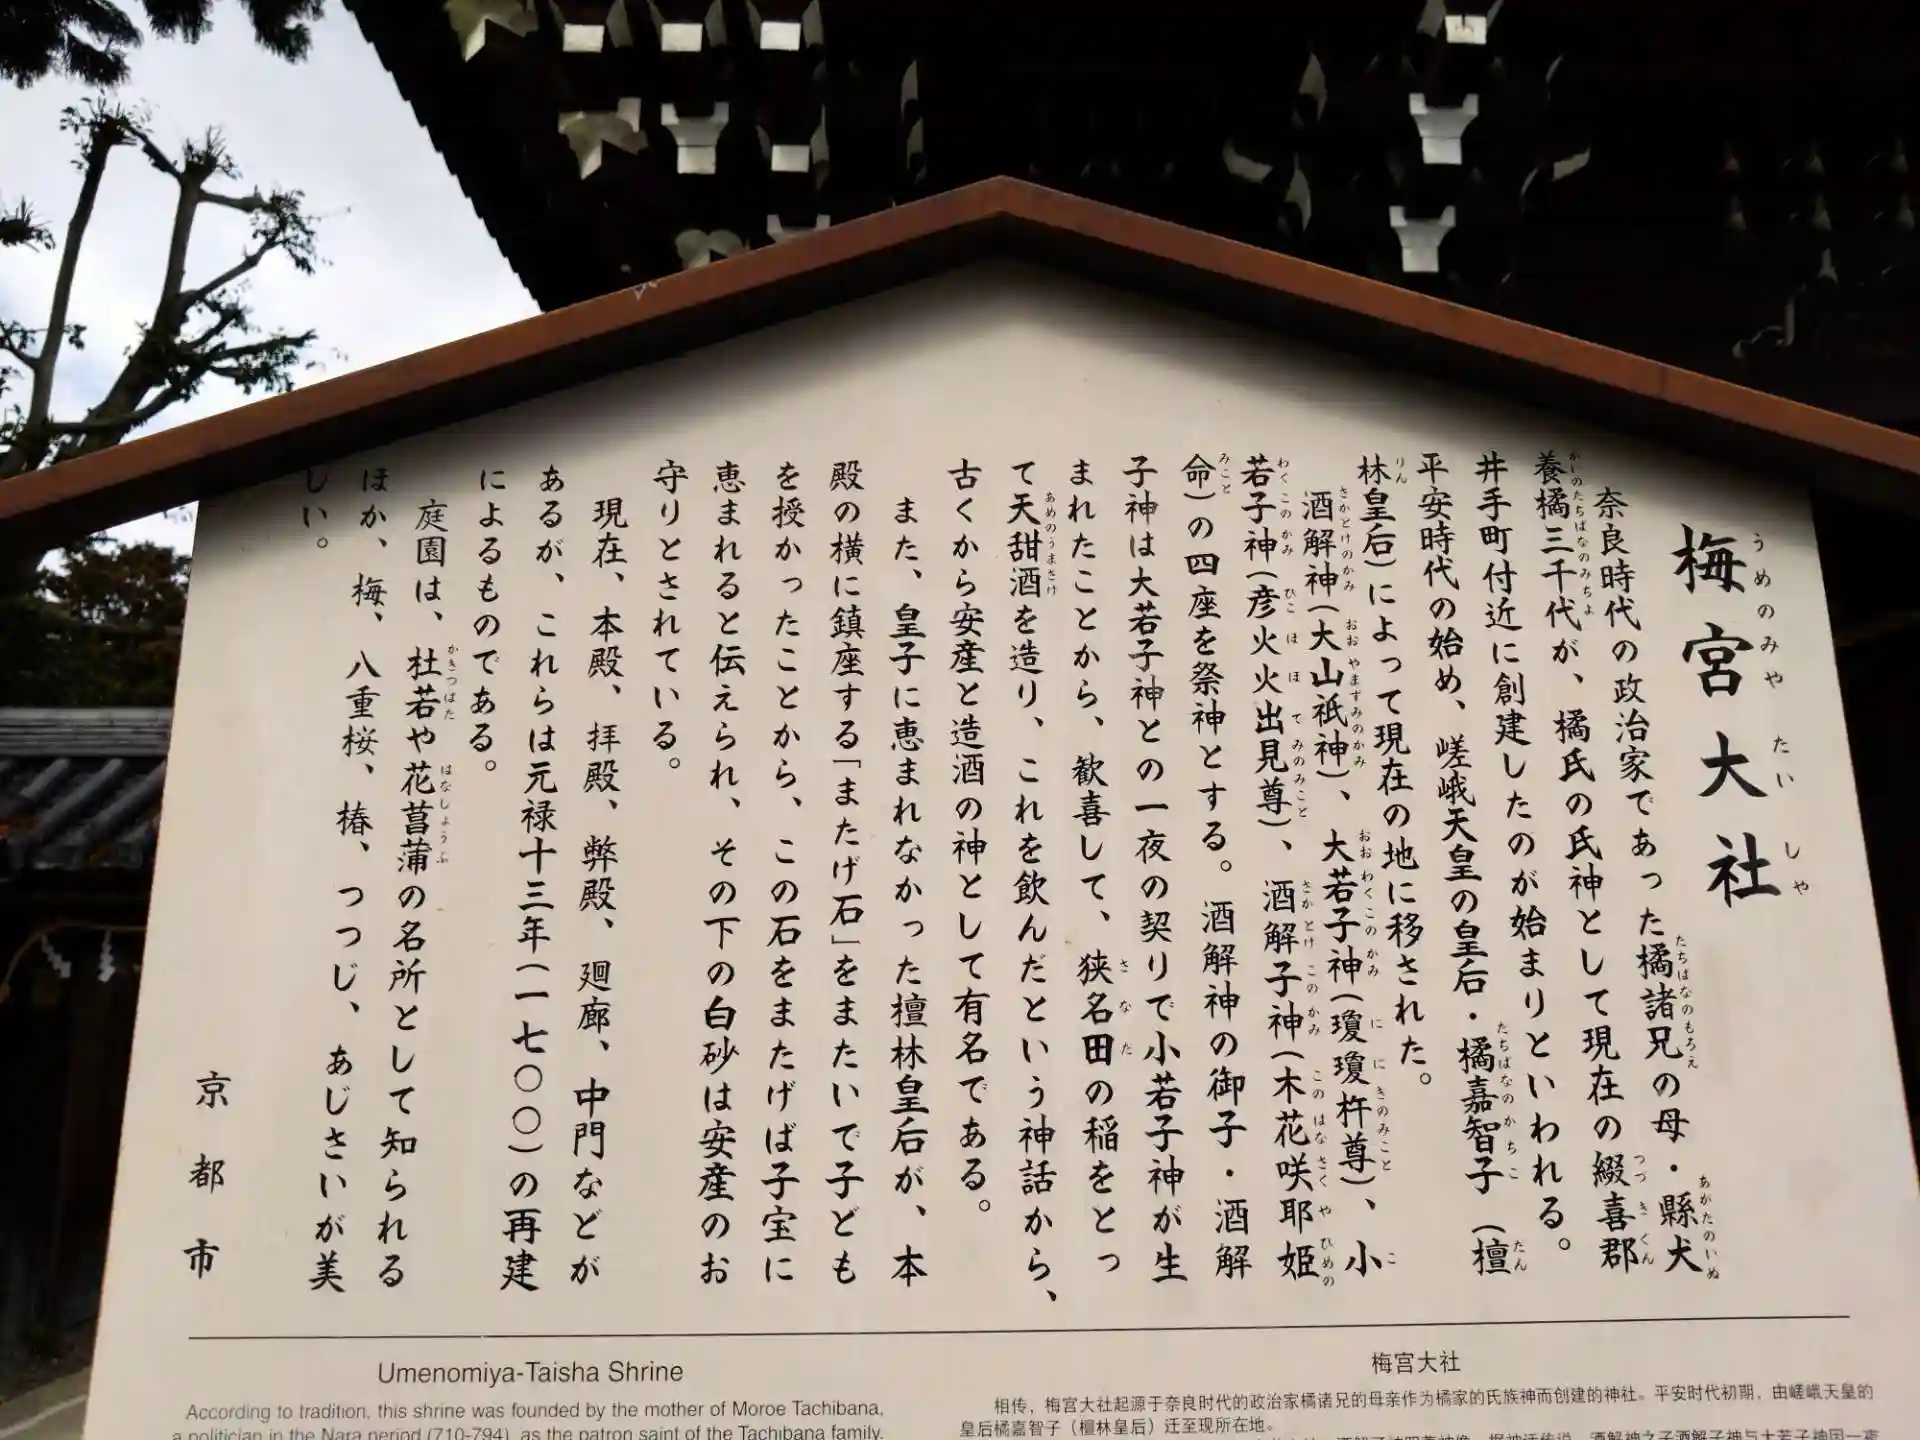 梅宮大社
うめのみやたいしゃ
奈良時代の政治家であった橘諸兄の母・縣犬
たちばなのもろえ
あがたのいぬ
養橘三千代が、橘氏の氏神として現在の綴喜郡
かいのたちばなのみちよ
つづきぐん
井手町付近に創建したのが始まりといわれる。
平安時代の始め、嵯峨天皇の皇后・橘嘉智子（檀
たちばなのかちこ
だん
林皇后）によって現在の地に移された。
りん
酒解神（大山祇神）、大若子神（瓊瓊杵尊）、小
さかとけのかみ
おおやまずみのかみ
おおわくこのかみ
ににぎのみこと
こ
若子神（彦火火出見尊）、酒解子神（木花咲耶姫
わくこのかみ
ひこほほでみのみこと
さかとけこのかみ
このはなさくやひめの
命）の四座を祭神とする。酒解神の御子・酒解
みこと
子神は大若子神との一夜の契りで小若子神が生
まれたことから、歓喜して、狭名田の稲をとっ
さなだ
て天甜酒を造り、これを飲んだという神話から、
あめのうまさけ
古くから安産と造酒の神として有名である。
また、皇子に恵まれなかった檀林皇后が、本
殿の横に鎮座する「またげ石」をまたいで子ども
を授かったことから、この石をまたげば子宝に
恵まれると伝えられ、その下の白砂は安産のお
守りとされている。
現在、本殿、拝殿、弊殿、廻廊、中門などが
あるが、これらは元禄十三年（一七〇〇）の再建
によるものである。
庭園は、杜若や花菖蒲の名所として知られる
かきつばた
はなしょうぶ
ほか、梅、八重桜、椿、つつじ、あじさいが美
しい。
京都市
Umenomiya-Taisha Shrine
According to tradition, this shrine was founded by the mother of Moroe Tachibana,
a politician in the Nara period (710-794), as the patron saint of the Tachibana family.
梅宫大社
相传，梅宫大社起源于奈良时代的政治家橘诸兄的母亲作为橘家的氏族神而创建的神社。平安时代初期，由嵯峨天皇的
皇后橘嘉智子（檀林皇后）迁至现所在地。